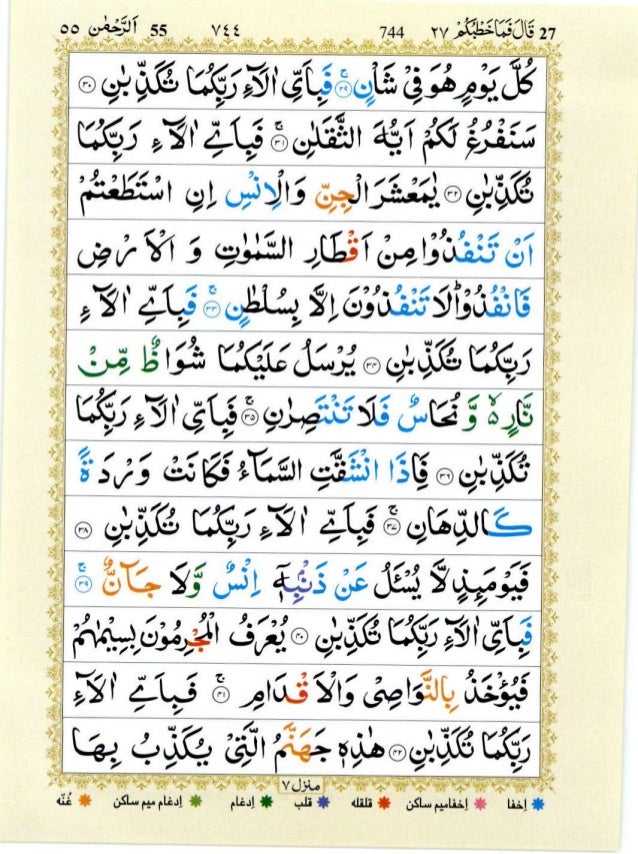 27 قَالَ فَمَا خَطْبُكُمْ ٢٧ 744 ٧٤٤ 55 اَلرَّحْمٰن ٥٥
كُلَّ يَوْمٍ هُوَ فِىْ شَاْنٍ ۚ‏﴿۲۹﴾ فَبِاَىِّ اٰلَآءِ رَبِّكُمَا تُكَذِّبٰنِ ﴿۳۰﴾
سَنَفْرُغُ لَكُمْ اَيُّهَ الثَّقَلٰنِ ۚ‏﴿۳۱﴾ فَبِاَىِّ اٰلَآءِ رَبِّكُمَا
تُكَذِّبٰنِ ﴿۳۲﴾ يٰمَعْشَرَ الْجِنِّ وَالْاِنْسِ اِنِ اسْتَطَعْتُمْ
اَنْ تَنْفُذُوْا مِنْ اَقْطَارِ السَّمٰوٰتِ وَ الْاَرْضِ
فَانْفُذُوْا ؕ لَا تَنْفُذُوْنَ اِلَّا بِسُلْطٰنٍ ۚ‏﴿۳۳﴾ فَبِاَىِّ اٰلَآءِ
رَبِّكُمَا تُكَذِّبٰنِ ﴿۳۴﴾ يُرْسَلُ عَلَيْكُمَا شُوَاظٌ مِّنْ
نَّارٍ ۙ۬ وَّ نُحَاسٌ فَلَا تَنْتَصِرٰنِ ۚ‏﴿۳۵﴾ فَبِاَىِّ اٰلَآءِ رَبِّكُمَا
تُكَذِّبٰنِ ﴿۳۶﴾ فَاِذَا انْشَقَّتِ السَّمَآءُ فَكَانَتْ وَرْدَةً
كَالدِّهَانِ ۚ‏﴿۳۷﴾ فَبِاَىِّ اٰلَآءِ رَبِّكُمَا تُكَذِّبٰنِ ﴿۳۸﴾
فَيَوْمَئِذٍ لَّا يُسْئَلُ عَنْ ذَنْۢبِهٖۤ اِنْسٌ وَّلَا جَآنٌّ ۚ‏﴿۳۹﴾
فَبِاَىِّ اٰلَآءِ رَبِّكُمَا تُكَذِّبٰنِ ﴿۴۰﴾ يُعْرَفُ الْمُجْرِمُوْنَ بِسِيْمٰهُمْ
فَيُؤْخَذُ بِالنَّوَاصِىْ وَالْاَقْدَامِ ۚ‏﴿۴۱﴾ فَبِاَىِّ اٰلَآءِ
رَبِّكُمَا تُكَذِّبٰنِ ﴿۴۲﴾ هٰذِهٖ جَهَنَّمُ الَّتِىْ يُكَذِّبُ بِهَا
منزل ٧
إخفا إخفامیم ساکن قلقله قلب إدغام إدغام میم ساکن غُنّه